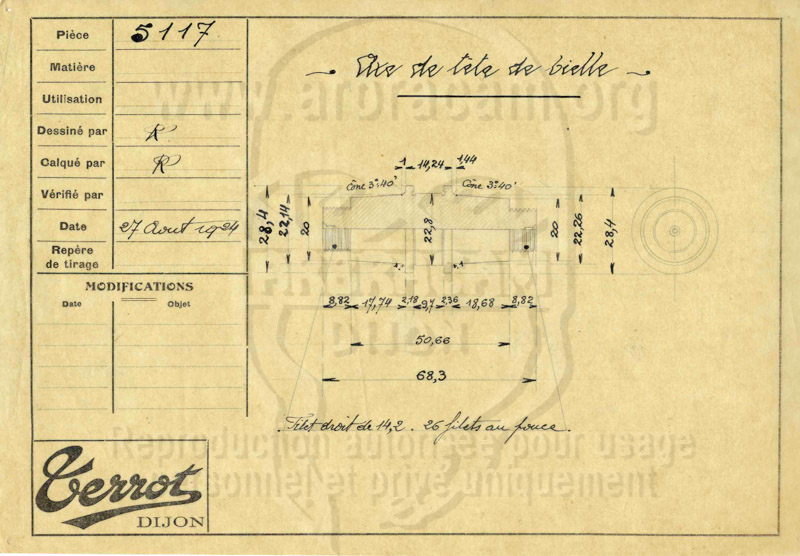 Pièce 5117
Matière
Utilisation
Dessiné par R
Calqué par R
Vérifié par
Date 27 Aout 1924
Repère
de tirage
MODIFICATIONS
Date Objet
Axe de tête de bielle
www.arbracam.org
1 14,24 1,44
Cône 3°40' Cône 3°40'
28,4 22,14 20 22,8 20 22,26 28,4
8,82 17,74 2,18 9,7 2,36 18,68 8,82
DIJON
50,66
68,3
Filet droit de 14,2. 26 filets au pouce.
Reproduction autorisée pour usage
personnel et privé uniquement
Terrot
DIJON